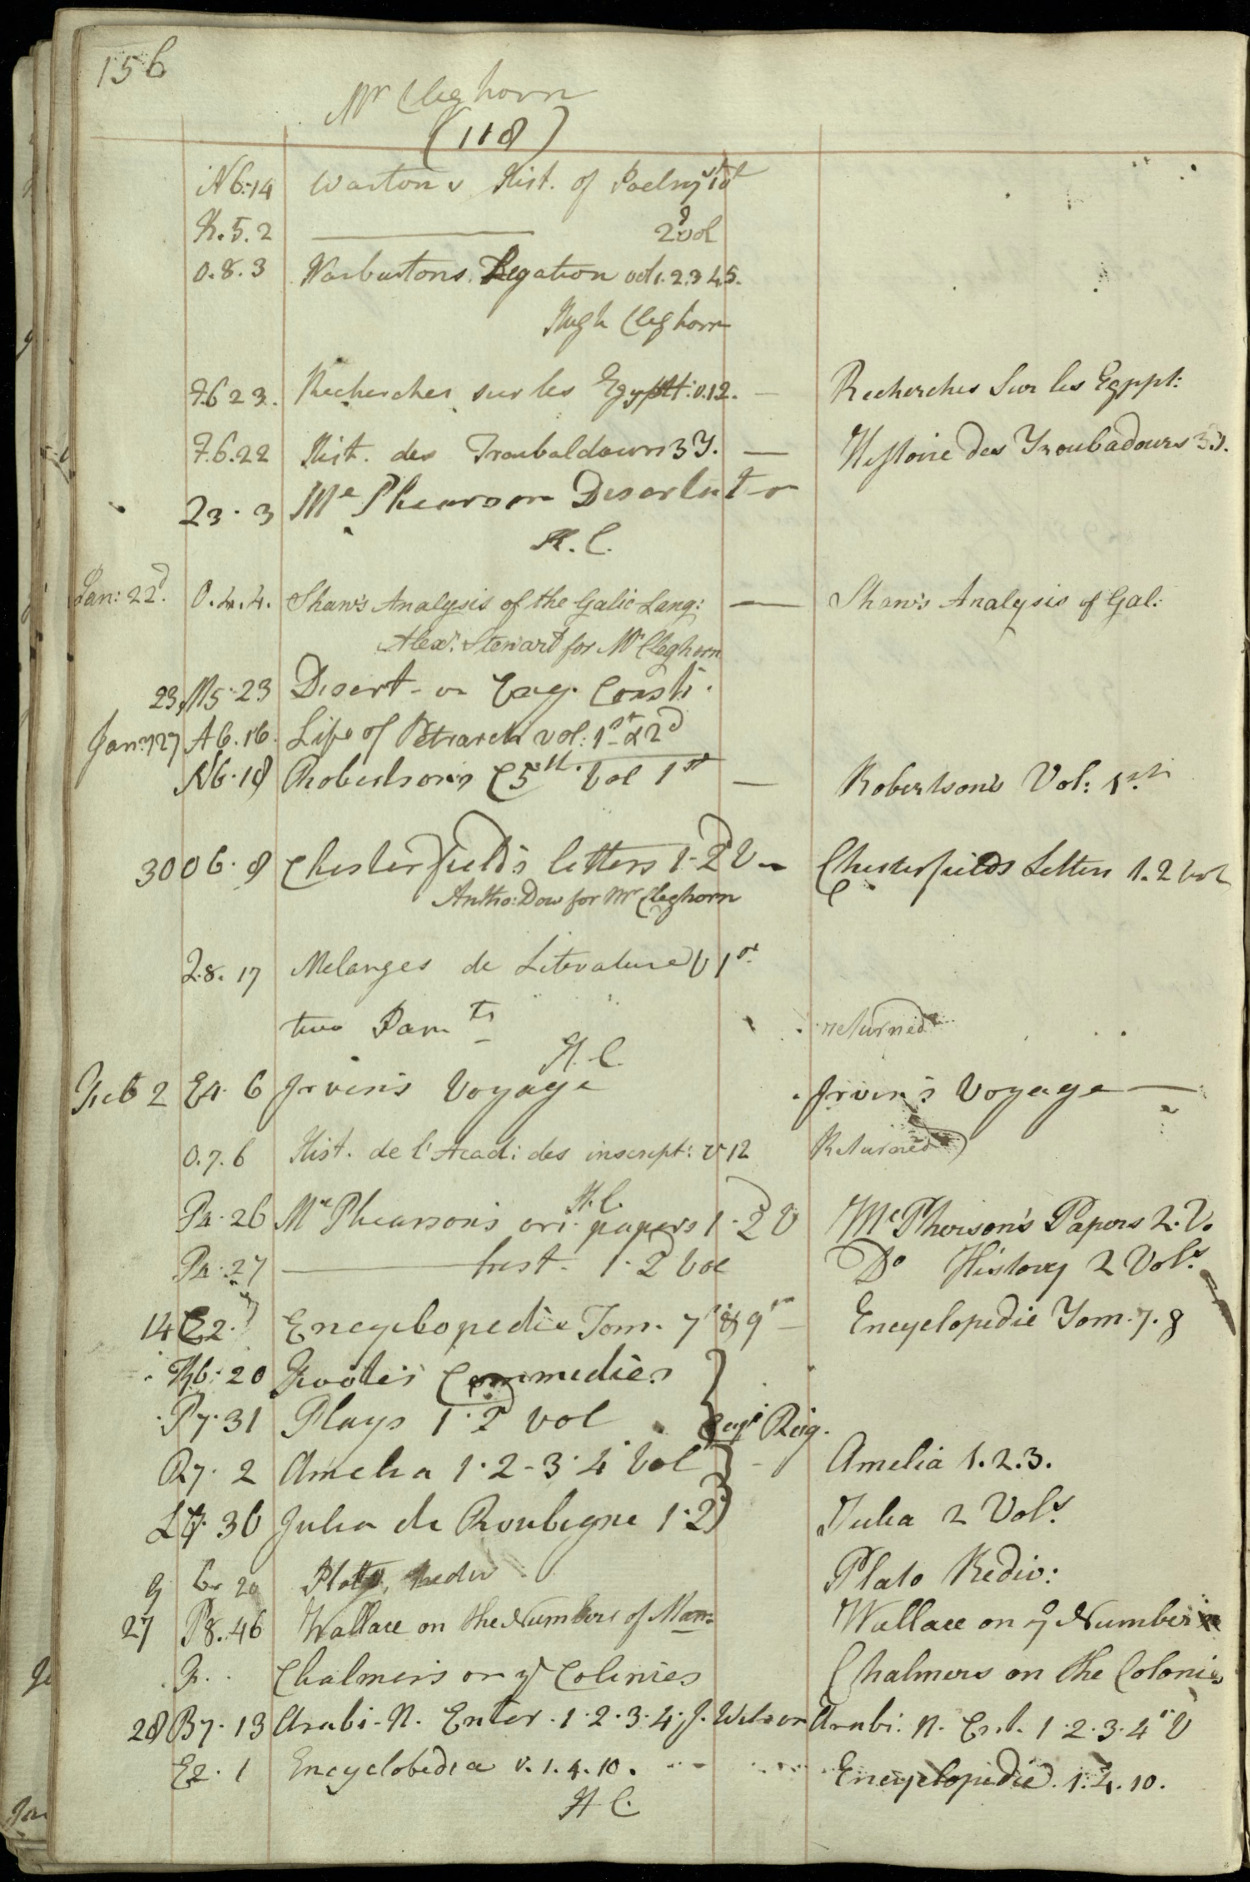 156
Mr Cleghorn
(118)
N6.14 Warton's Hist. of Poetry 1st
K.5.2 ——— 2d vol
O.8.3 Warburtons Legation vol 1.2.3.4.5.
Hugh Cleghorn
F.6.23. Recherches sur les Egypt: v.1.2. — Recherches Sur les Egypt:
F.6.22 Hist. des Troubaldours 3 T. — Histoire des Troubadours 3.T.
23.3 McPhearson Disertat-n
H.C.
Jan: 22d. O.4.4. Shaw's Analysis of the Galic Lang: — Shaw's Analysis of Gal:
Alexr. Stewart for Mr Cleghorn
23 M5.23 Disert- on Eng. Consti.
Jany 27 A6.16. Life of Petrarch vol: 1st & 2d
N6.18 Robertson's C 5th. Vol 1st — Robertson's Vol: 1st
30 O6.8 Chesterfield's letters 1-2 V — Chesterfields Letters 1.2 vol
Antho: Dow for Mr Cleghorn
I.8.17 Melanges de Literature V 1st
two Parts returned
H.C.
Feb 2 E4.6 Irvin's Voyage Irvin's Voyage —
O.7.6 Hist. de l'Acad: des inscript: v 12 Returned
H.C.
P4.26 McPhearson's ori. papers 1.2 V McPherson's Papers 2.V.
P4.27 ——— hist. 1.2 Vol Do History 2 Vols
14 E2. Encyclopedie Tom. 7 & 9 — Encyclopedie Tom. 7.8
R6.20 Foote's Commedies
P7.31 Plays 1.2 vol Reig.
R7.2 Amelia 1.2-3.4 Vol - Amelia 1.2.3.
36 Julia de Roubigne 1.2 Julia 2 Vols
9 20 Plato Rediv Plato Rediv:
27 P8.46 Wallace on the Numbers of Man= Wallace on ye Number
F.. Chalmers on ye Colonies Chalmers on the Colonies
28 B7.13 Arabi-N. Enter.1.2.3.4. J. Wilson Arabi: N. Ent. 1.2.3.4 V
E2.1 Encyclobedia v.1.4.10. Encyclopedie. 1.4.10.
H C.